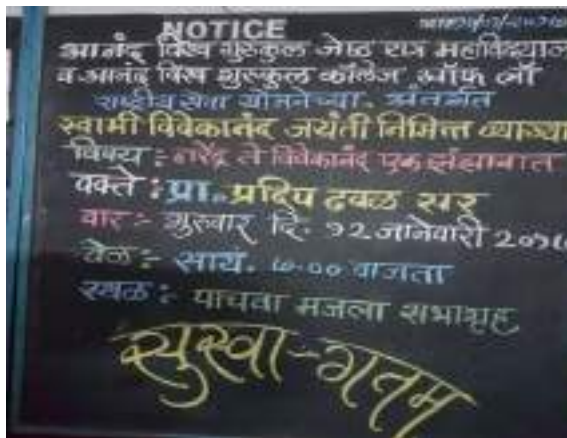 NOTICE
आनंद विश्व गुरुकुल जेष्ठ रात्र महाविद्याल
व आनंद विश्व गुरुकुल कॉलेज ऑफ लॉ
राष्ट्रीय सेवा योजनेच्या. अंतर्गत
स्वामी विवेकानंद जयंती निमित्त व्याख्या
विषय :- नरेंद्र ते विवेकानंद एक झंझावात
वक्ते : प्रा. प्रदिप ढवळ सर
वार :- गुरुवार दि. १२ जानेवारी २०१७
वेळ :- सायं. ७.०० वाजता
स्थळ :- पाचवा मजला सभागृह
सुस्वा-गतम